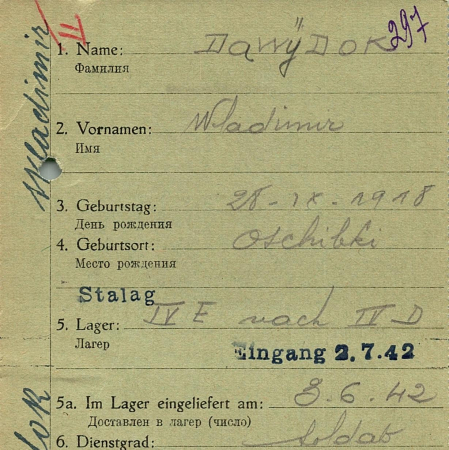 Wladimir
II
297
1. Name: Dawÿdok
Фамилия
2. Vornamen: Wladimir
Имя
3. Geburtstag: 28-IX-1918
День рождения
4. Geburtsort: Oschibki
Место рождения
Stalag
5. Lager: IV E nach IV D
Лагер
Eingang 2.7.42
5a. Im Lager eingeliefert am: 3.6.42
Доставлен в лагер (число)
6. Dienstgrad: Soldat
dok